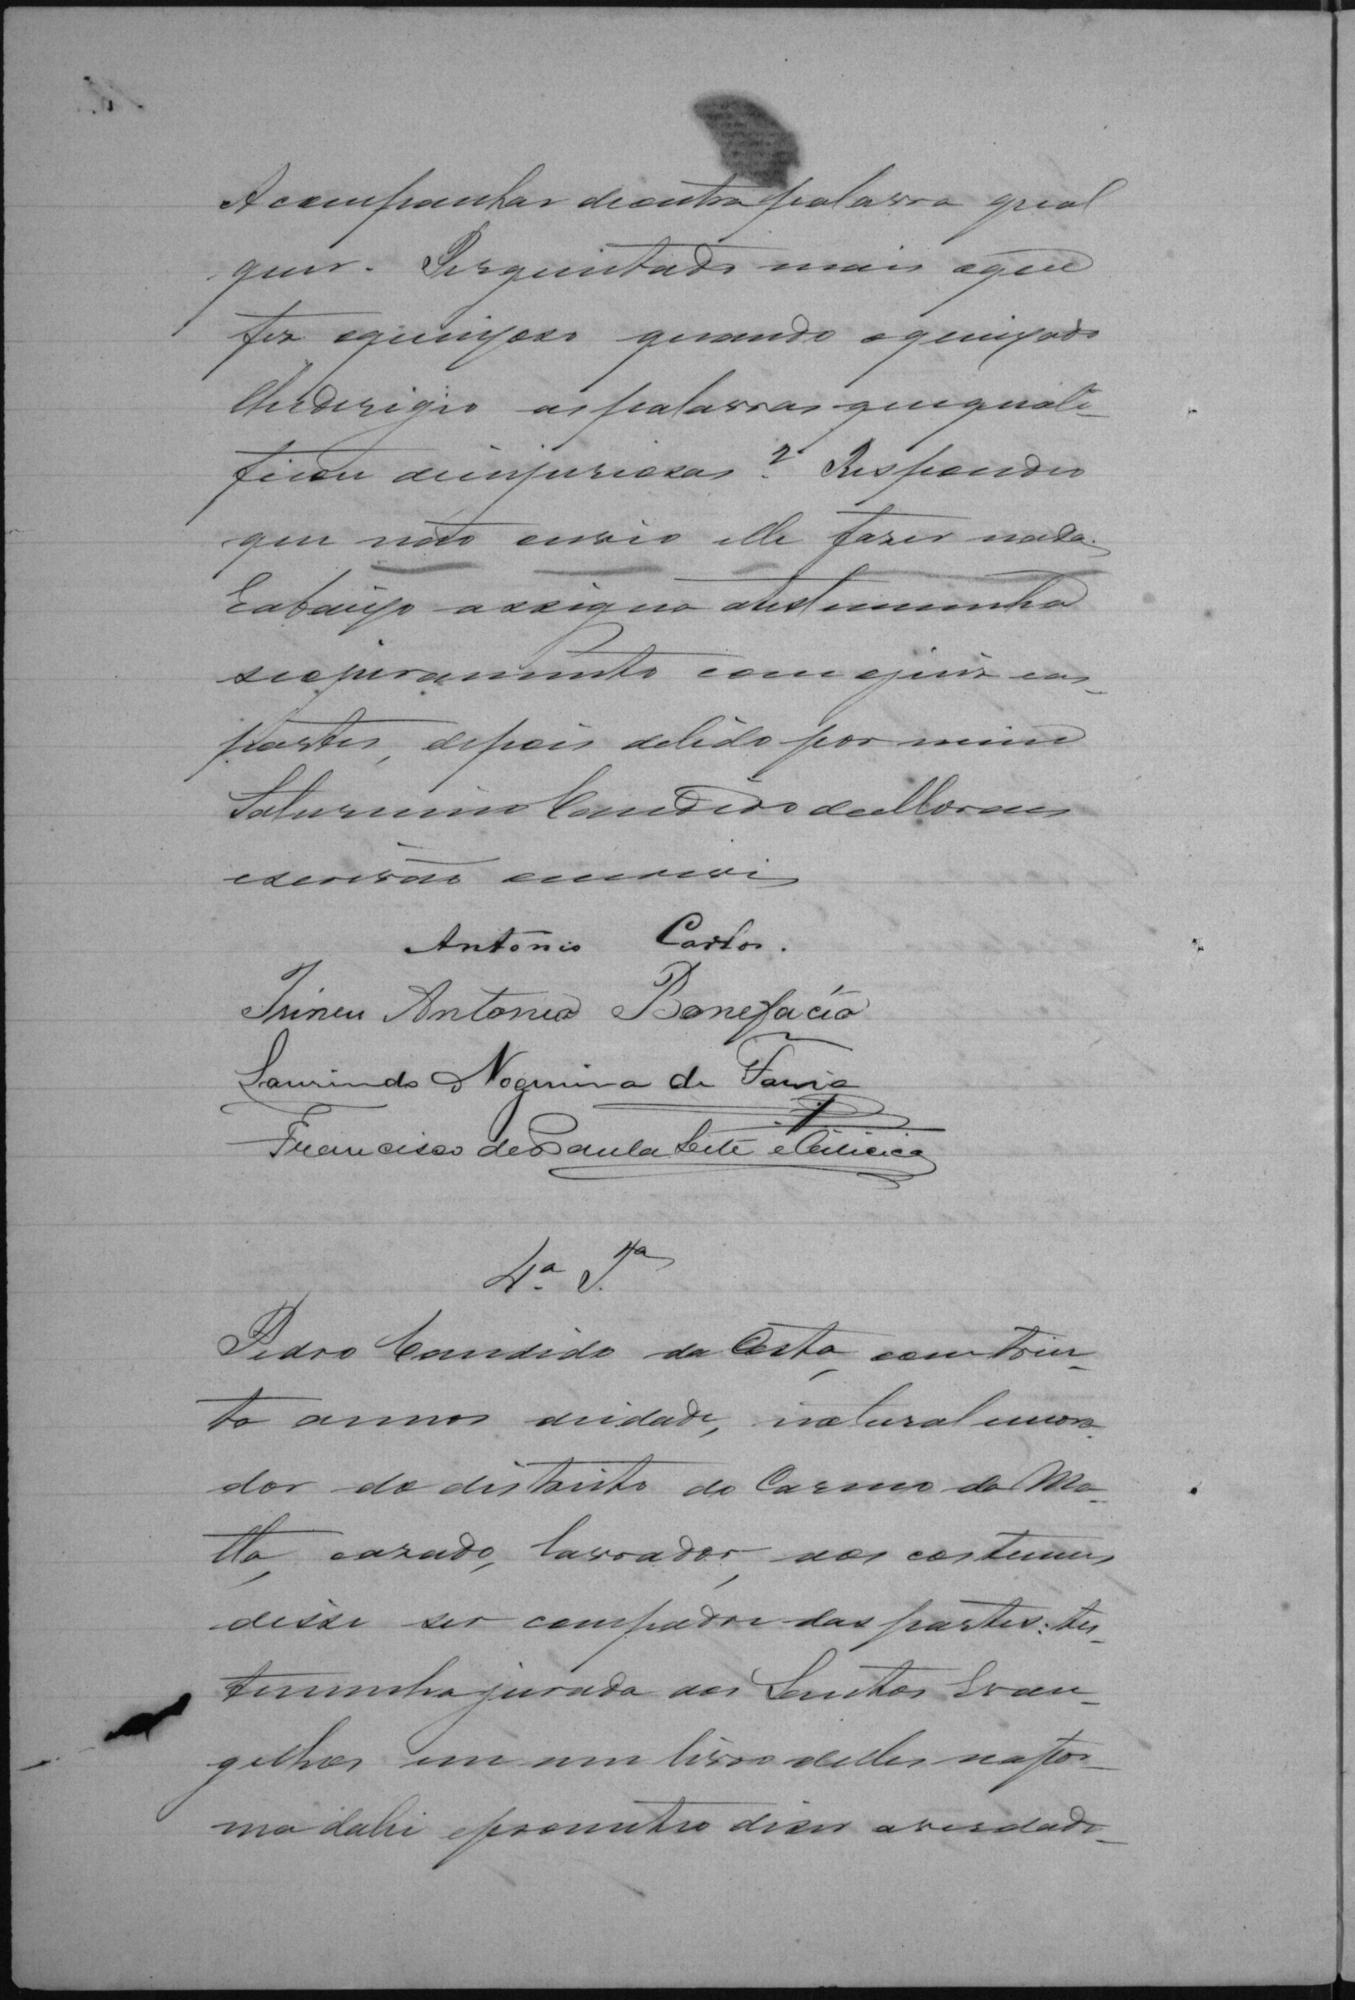 Acompanhar de outra palavra qual
quer. Perguntado mais o que
fez o queixoso quando o queixado
lhe derigio as palavras que quali-
ficou de injuriosas? Respondeo
que não ouvio elle fazer nada.
E abaixo assigna a testemunha
seo juramento com o juiz e as
partes, depois de lido por mim
Saturnino Candido de Moraes
escrivão escrevi
Antonio Carlos.
Irineu Antonio Bonefacio
Laurindo Nogueira de Faria
Francisco de Paula Leite e
4ª Tª
Pedro Candido da Costa, com trin-
ta annos de idade, natural e mora-
dor do distrito do Carmo da Ma-
tta, cazado, lavrador, aos costumes
disse ser compadre das partes: tes-
temunha jurada aos Santos Evan-
gelhos em um livro delles na for-
ma da lei e prometteo dizer a verdade-